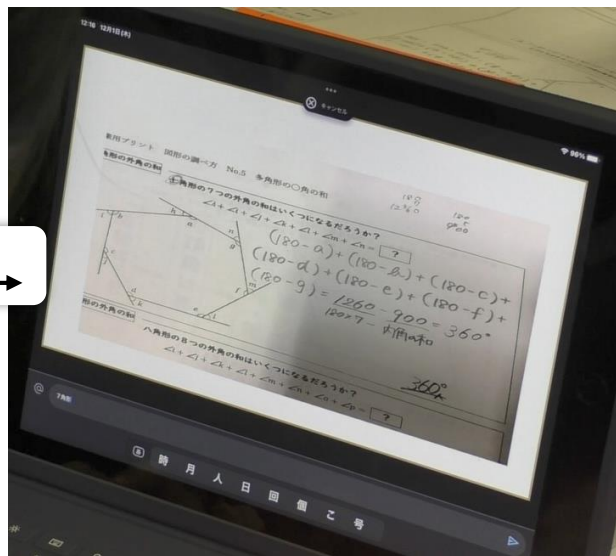 12:16 12月1日(木)
キャンセル
96%
図形の調べ方 No.5 多角形の○角の和
角形の外角の和
七角形の7つの外角の和はいくつになるだろうか？
∠h+∠i+∠j+∠k+∠l+∠m+∠n= ?
(180-a)+(180-b)+(180-c)+
(180-d)+(180-e)+(180-f)+
(180-g)=1260-900=360°
180×7 - 内角の和
360°
形の外角の和
八角形の8つの外角の和はいくつになるだろうか？
7角形
時 月 人 日 回 個 こ 号